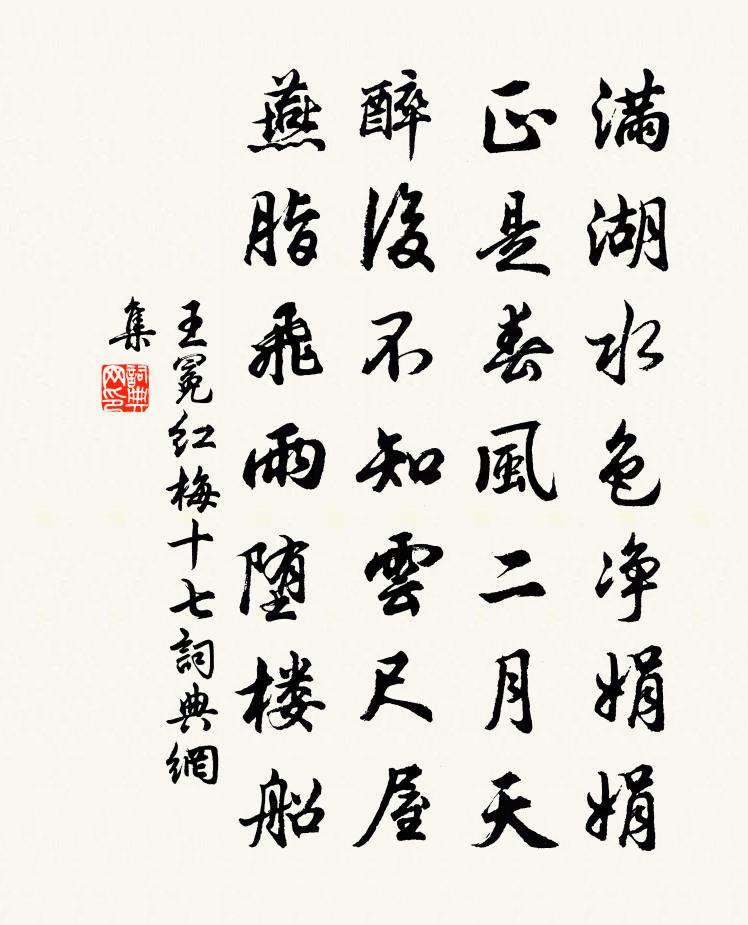 满湖水色净娟娟
正是春風二月天
醉後不知雲尺屋
燕脂飛雨堕楼船
王冕红梅十七詞典網
集
詞典
网印